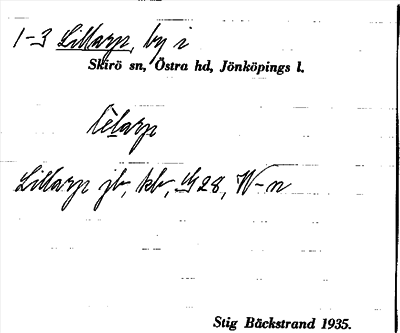 1-3 Lillarp, by i
Skirö sn, Östra hd, Jönköpings l.
lèlarp
Lillarp jb, kb, G28, W-n
Stig Bäckstrand 1935.